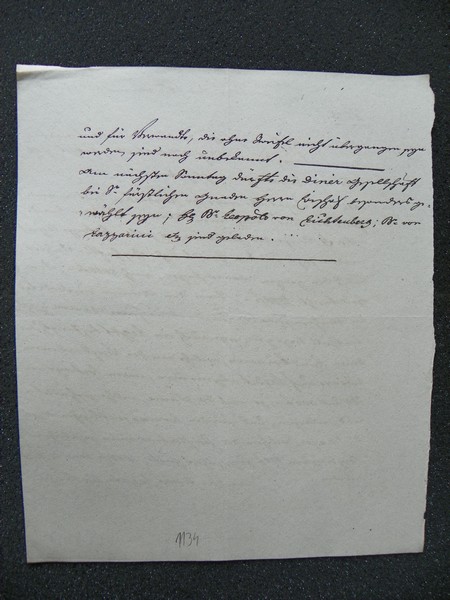 und für Verwandte, die ohne Zweifel nicht übergangen seyn
werden, sind noch unbekannt.
Am nächsten Sonntag dürfte die diner Gesellschaft
bei Sr fürstlichen Gnaden Herrn Bischof besonders ge-
wählt seyn; von Lichtenberg; Br. von
Lazzarini etc sind geladen.
1134